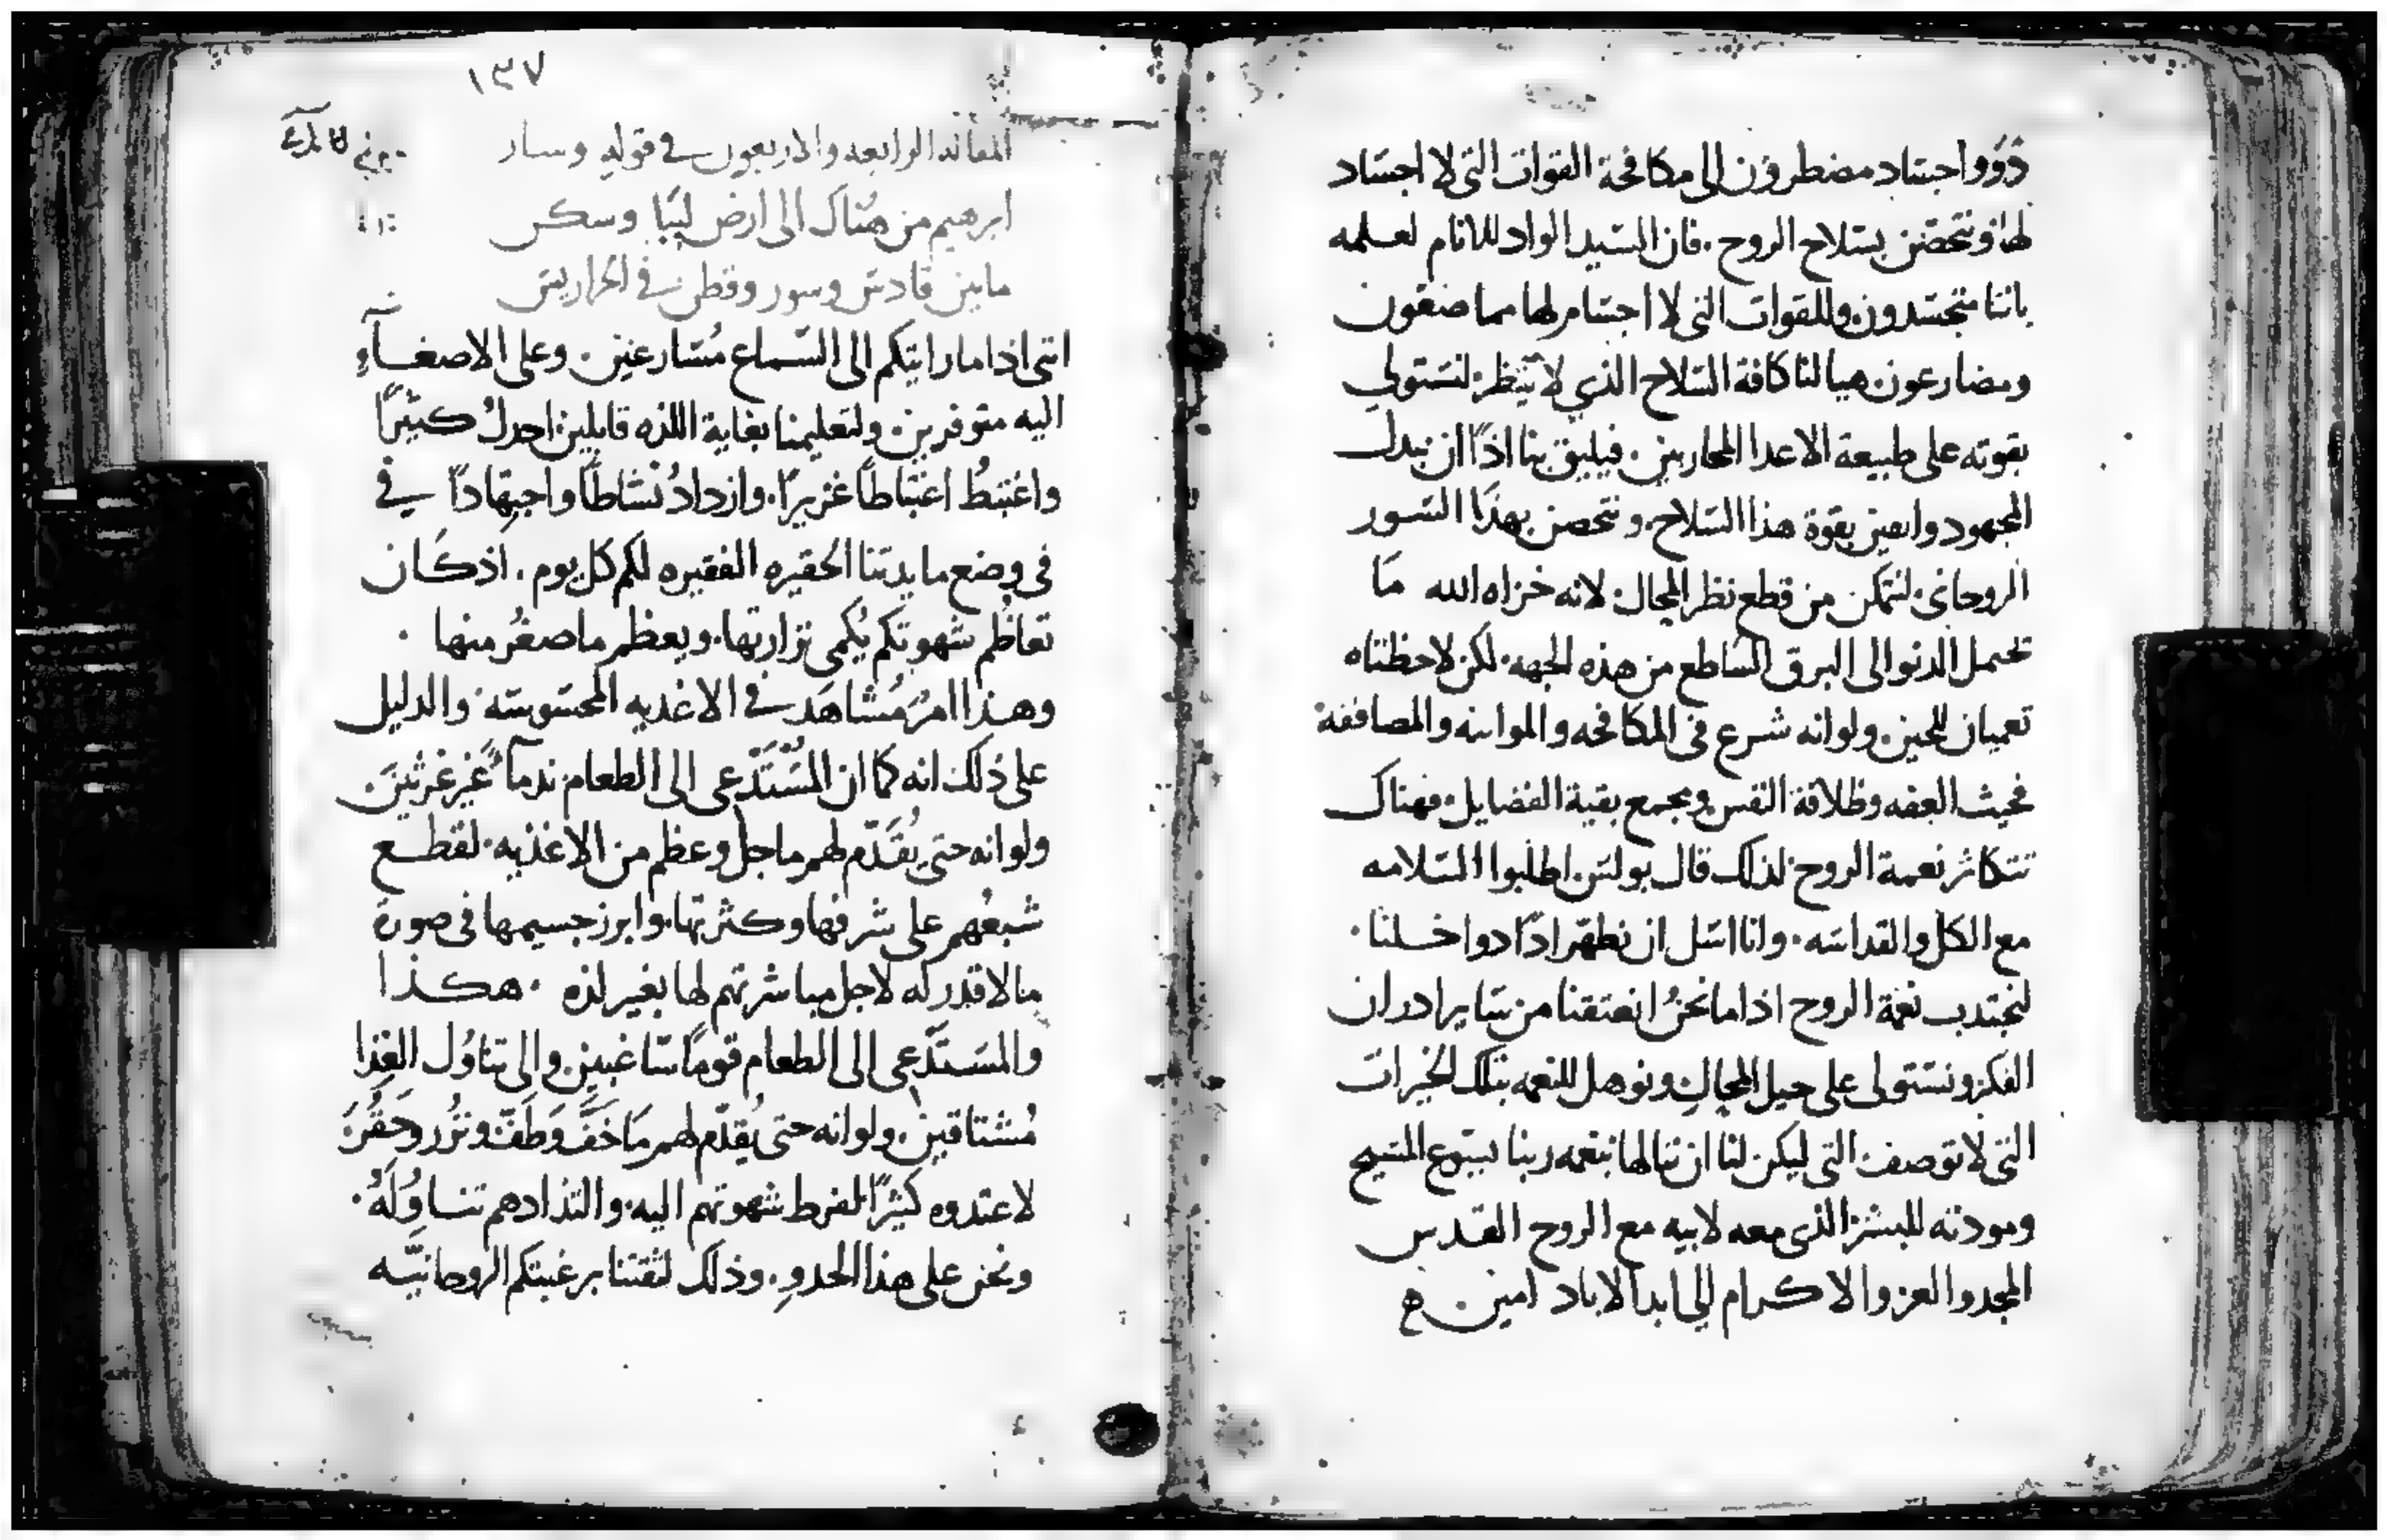 ذوو اجساد مضطرون الى مكافحة القوات التى لا اجساد
لها ونتحصن بسلاح الروح . فان السيد الواد للانام لعلمه
باننا متجسدون وللقوات التى لا اجسام لها مما صفون
ومضارعون هيا لنا كافة السلاح الذي لا ينظر لنستولي
بقوته على طبيعة الاعدا المحاربين . فيليق بنا اذًا ان نبدل
المجهود واثقين بقوة هذا السلاح . ونتحصن بهذا السور
الروحانى لنتمكن من قطع نظر المحال لانه خزاه الله ما
تحمل الدنو الى البرق الساطع من هذه الجهه لكن لاحظتاه
تعميان للحين ولو انه شرع فى المكافحه والمواثبه والمصاففة
فحيث العفه وطلاقة النفس ومجمع بقية الفضايل فهناك
تتكاثر نعمة الروح لذلك قال بولس اطلبوا السلامه
مع الكل والقداسه . وانا اسل ان نطهر اذًا دواخلنا .
لنجتدب نعمة الروح اذا ما نحنُ انعتقنا من ساير ادران
الفكر ونستولى على حيل المحال ونوهل للنعمه بتلك الخيرات
التى لا توصف التى ليكن لنا ان ننالها بنعمه ربنا يسوع المسيح
ومودته للبشر الذى معه لابيه مع الروح القدس
المجد والعز والاكرام الي ابد الاباد امين ه
١٣٧
المقاله الرابعه والاربعون فى قوله وسار
ابرهيم من هناك الى ارض ليبا وسكن
ما بين قادس وسور وقطن فى الخراريس
اننى اذا ما رايتكم الى السماع مُسارعين . وعلى الاصغآءِ
اليه متوفرين . ولتعليمنا بغاية اللذه قابلين اجدلُ كثيرًا
واغتبطُ اغتباطًا غزيرًا . وازدادُ نشاطًا واجتهادًا فى
فى وضع مايدتنا الحقيره الفقيره لكم كل يوم . اذ كان
تعاظم شهوتكم يُكمى نزارتها . ويعظم ما صغُر منها .
وهذا امرٌ مُشاهَد فى الاغديه المحسوسه . والدليل
على ذلك انه كما ان المُستَدعى الى الطعام ندمآً غير غرثين
ولو انه حتى يُقَدّم لهم ما جل وعظم من الاغذيه . لقطع
شبعُهم على شرفها وكثرتها . وابرز جسيمها فى صورة
ما لا قدر له لاجل مباشرتهم لها بغير لذه . هكذا
والمستَدعى الى الطعام قومًا ساغبين والى تناوُل الغذا
مُشتاقين . ولو انه حتى يُقدّم لهم ما خَفَّ وَطَفّ ونزُر وحَقُرَ
لاعتدوه كثيرًا لفرط شهوتهم اليه . والتذادهم تناوُلَهُ .
ونحن على هذا الحدوِ . وذلك لثقتنا برغبتكم الروحانيّه